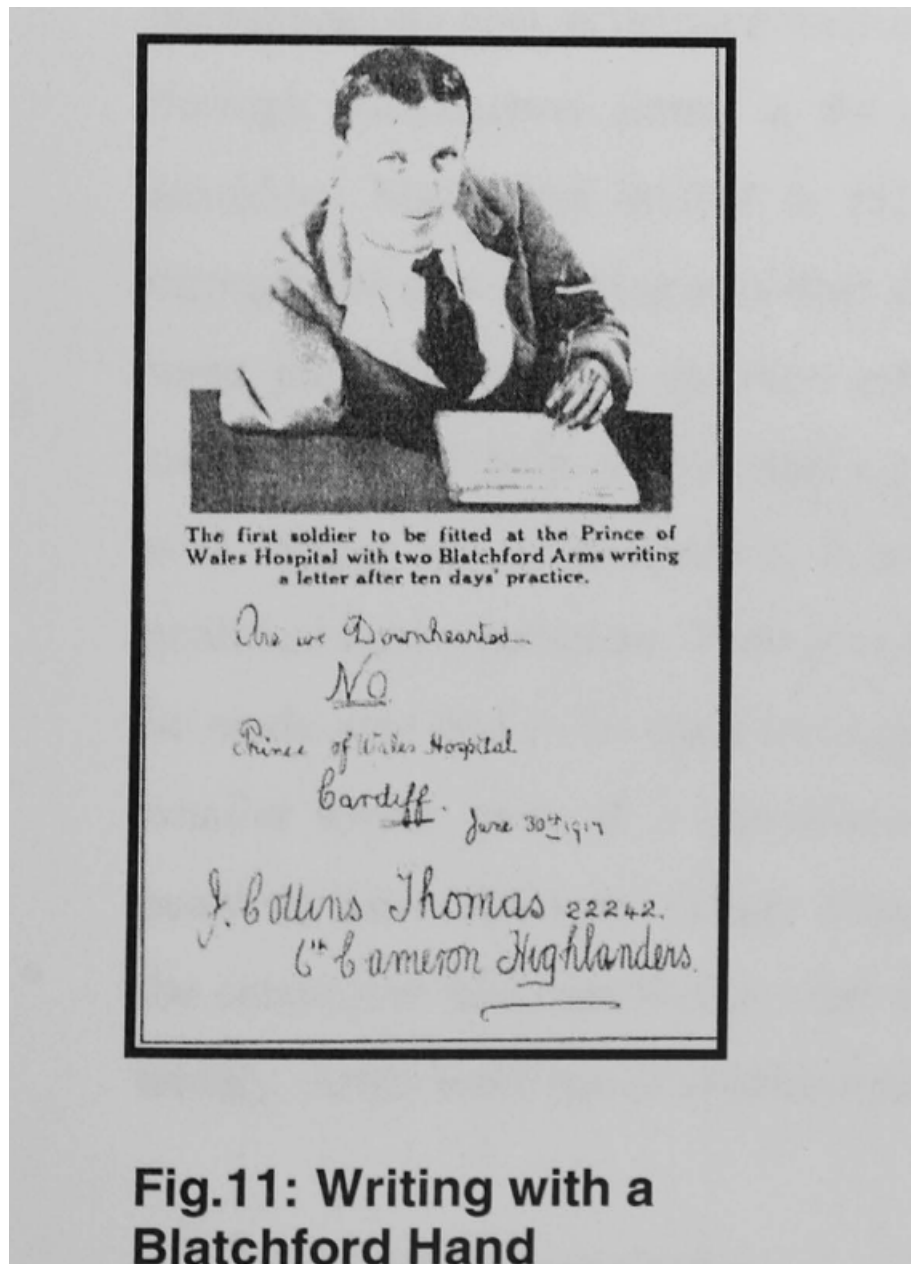 The first soldier to be fitted at the Prince of
Wales Hospital with two Blatchford Arms writing
a letter after ten days' practice.
Are we Downhearted
NO
Prince of Wales Hospital
Cardiff.
June 30th 1917
J. Collins Thomas 22242.
6th Cameron Highlanders.
Fig.11: Writing with a
Blatchford Hand